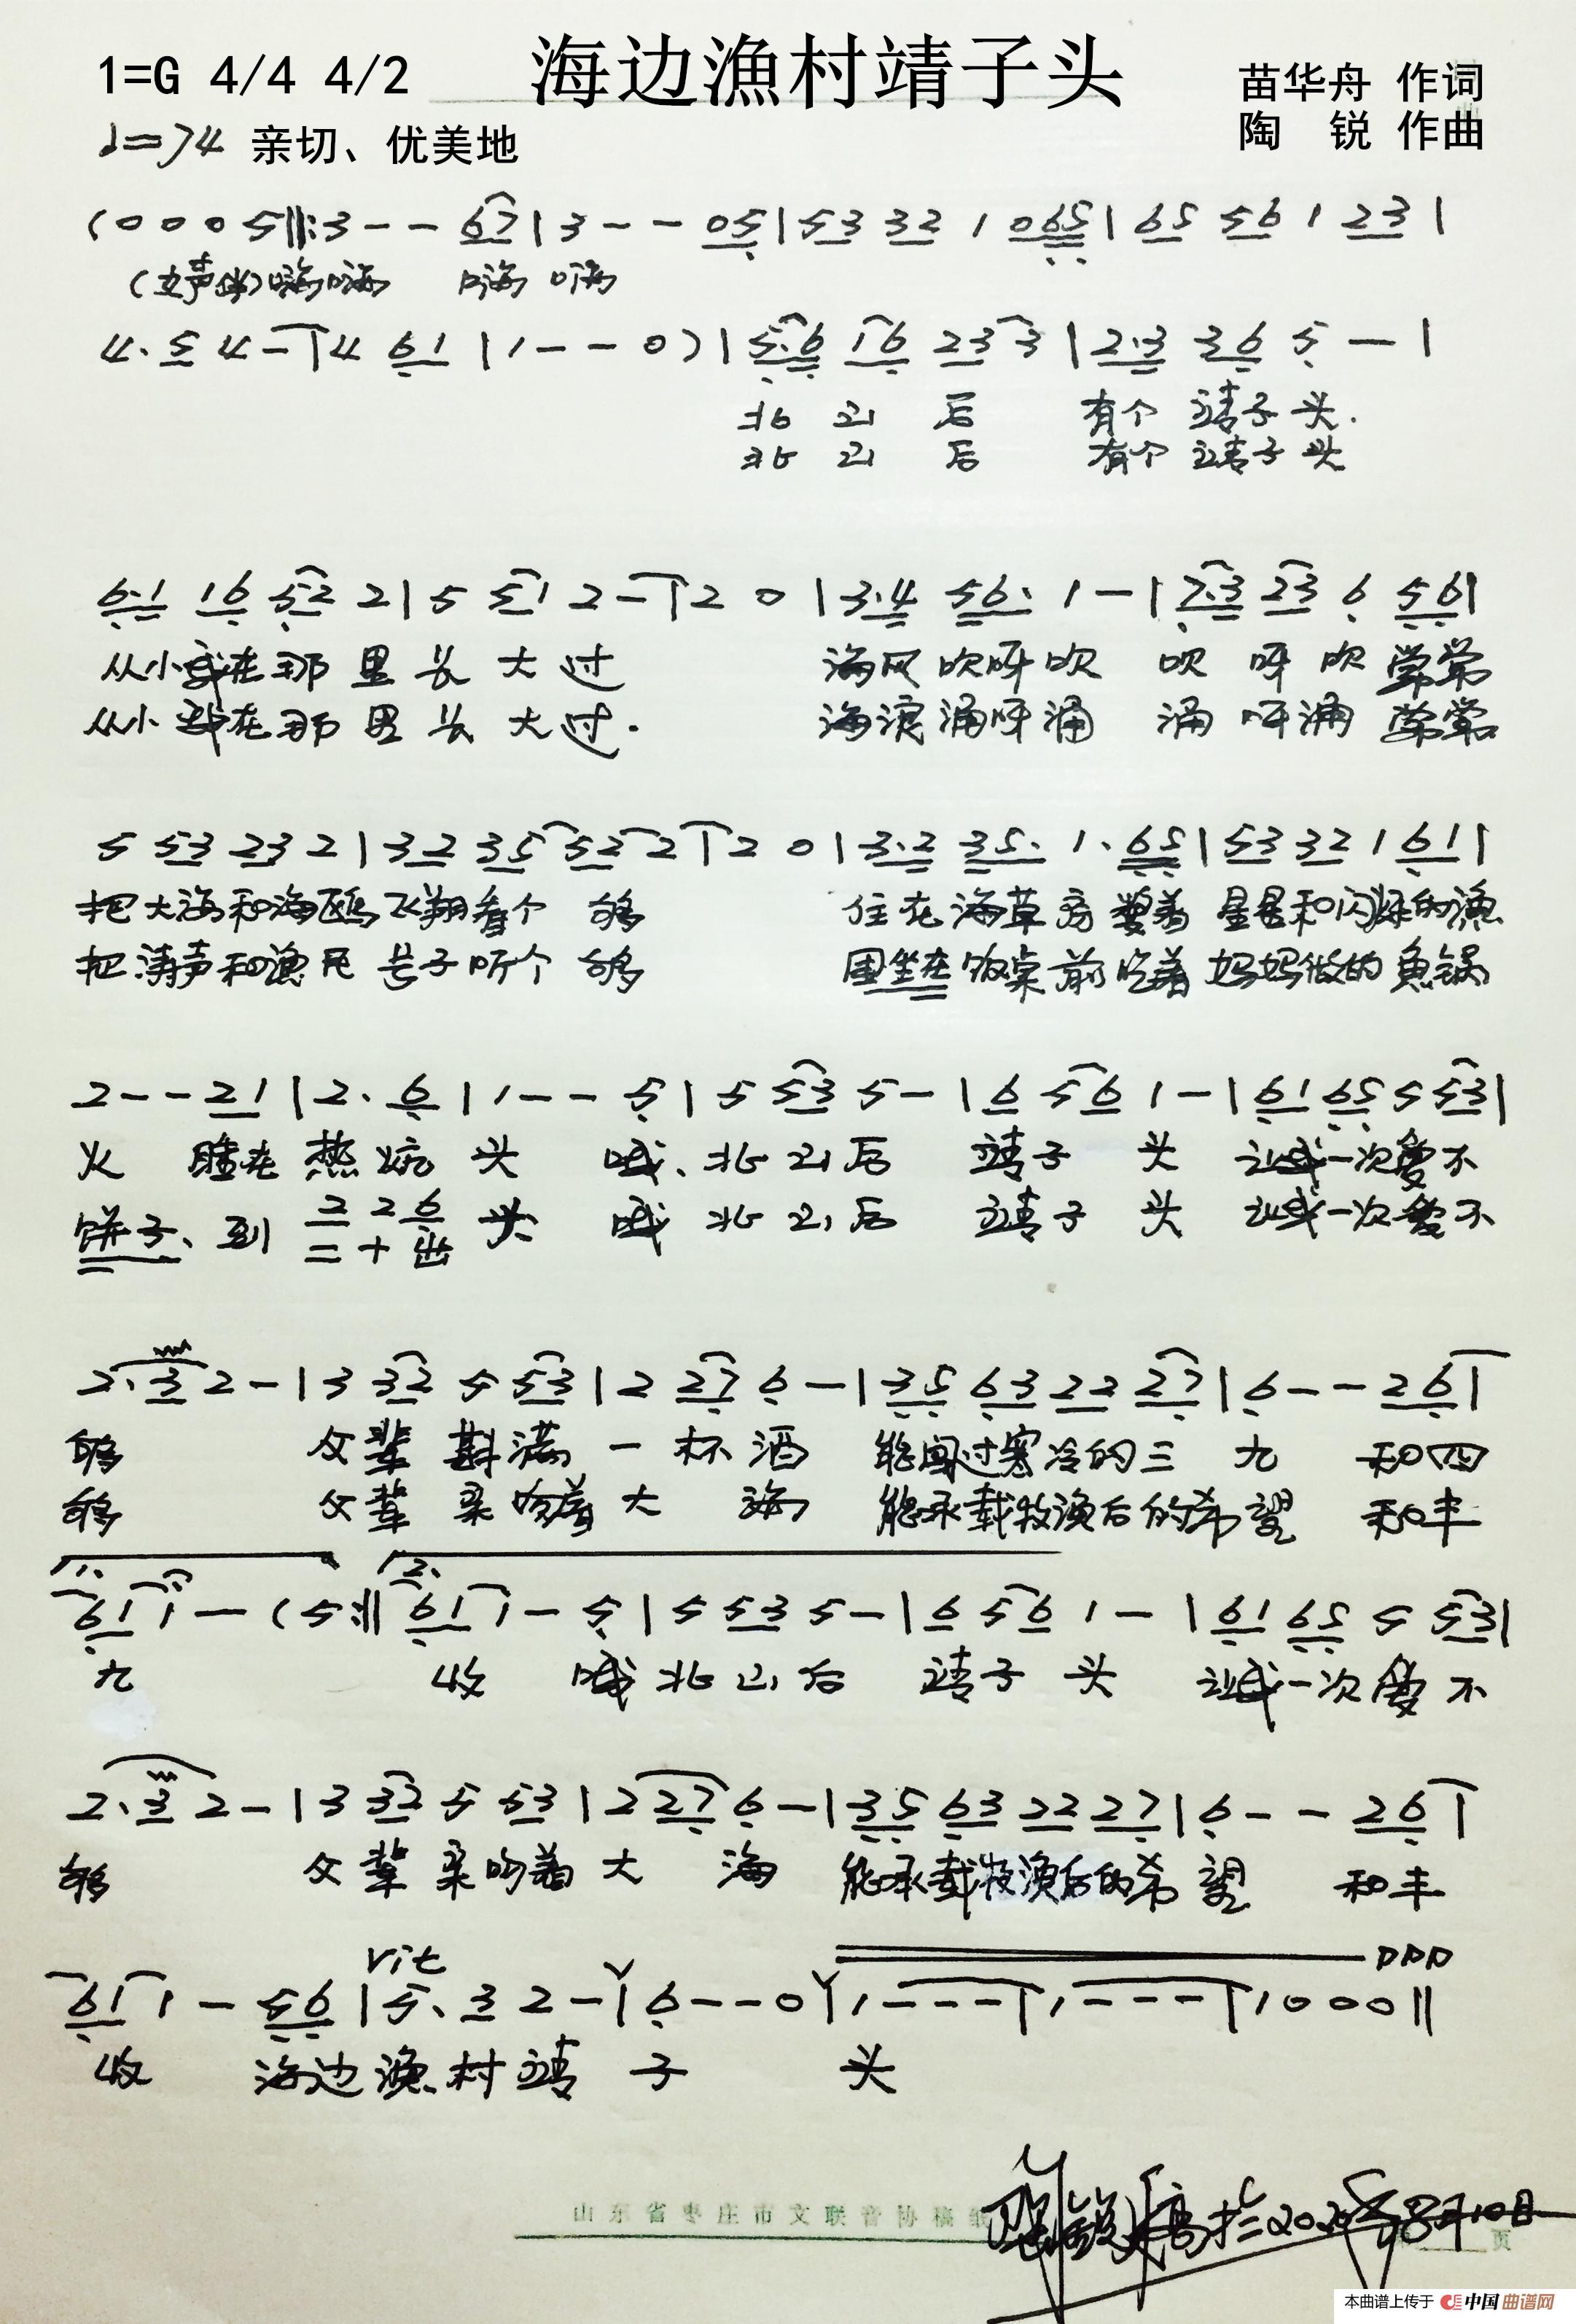 海边渔村靖子头
1=G 4/4 4/2
苗华舟 作词
陶 锐 作曲
♩=74 亲切、优美地
(0 0 0 5‖:3 - - 67|3 - - 05|53 32 1 065|65 56 1 23|
(女声伴)嗨嗨 嗨 嗨
4. 5 4 -|4 61|1 - - 0)|5.6 16 23 3|2.3 36 5 -|
北 山 后 有个 靖子头.
北 山 后 有个 靖子头
6.1 16 52 2|5 51 2 -|2 0|3.4 56. 1 -|7.3 23 6 56|
从小我在那里长大过 海风吹呀吹 吹呀吹 常常
从小我在那里长大过. 海浪涌呀涌 涌呀涌 常常
5 53 23 2|32 35 52 2|2 0|3.2 35. 1. 65|53 32 1 61|
把大海和海鸥飞翔看个够 住在海草房 着 星星和闪烁的渔
把涛声和渔民号子听个够 围坐在饭桌前吃着妈妈做的鱼锅
2 - - 21|2. 6|1 - - 5|5 53 5 -|6 56 1 -|61 65 5 53|
火 睡在热炕头 喊、北山后 靖子头 让我一次爱不
饼子、到 2 26 头 喊 北山后 靖子头 让我一次爱不
二十出
2. 3 2 -|3 32 5 53|2 27 6 -|35 63 22 27|6 - - 26|
够 父辈斟满一杯酒 能闯过寒冷的三九 和四
够 父辈亲吻着大海 能承载牧渔后的希望 和丰
1. 2.
61 1 - (5:‖61 1 - 5|5 53 5 -|6 56 1 -|61 65 5 53|
九 收 喊 北山后 靖子头 让我一次爱不
2. 3 2 -|3 32 5 53|2 27 6 -|35 63 22 27|6 - - 26|
够 父辈亲吻着大海 能承载牧渔后的希望 和丰
rit ppp
61 1 - 56|5. 3 2 -|6 - - 0|1 - - -|1 - - -|1 0 0 0‖
收 海边渔村靖子 头
山东省枣庄市文联音协稿纸
8月10日
页
本曲谱上传于 中国曲谱网